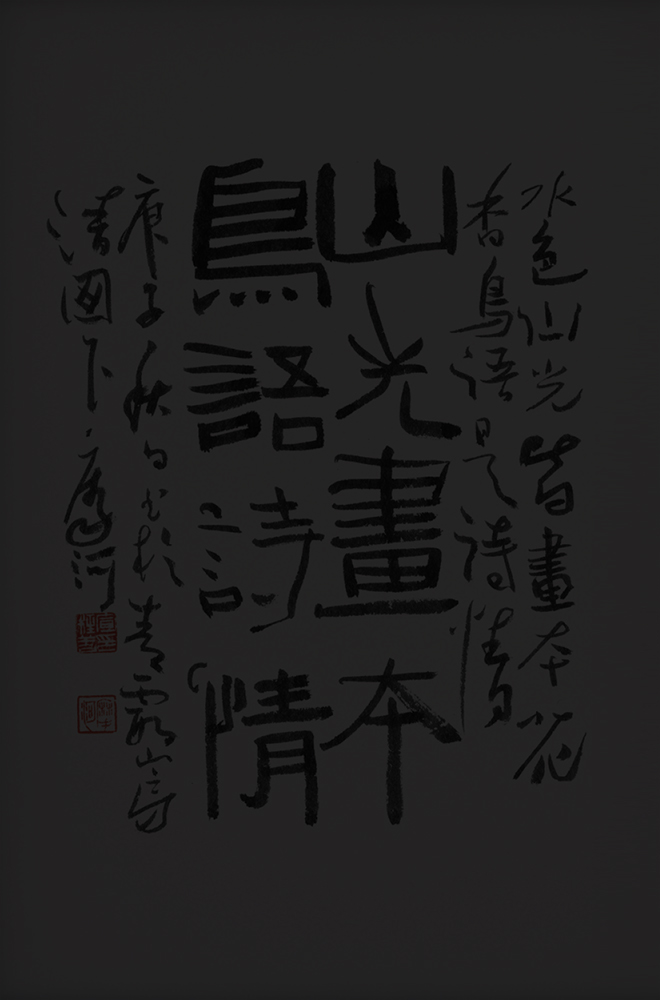 水色山光皆畫本花
香鳥語是詩情
山光畫本
鳥語詩情
庚子秋月書於青霞山房
清風下